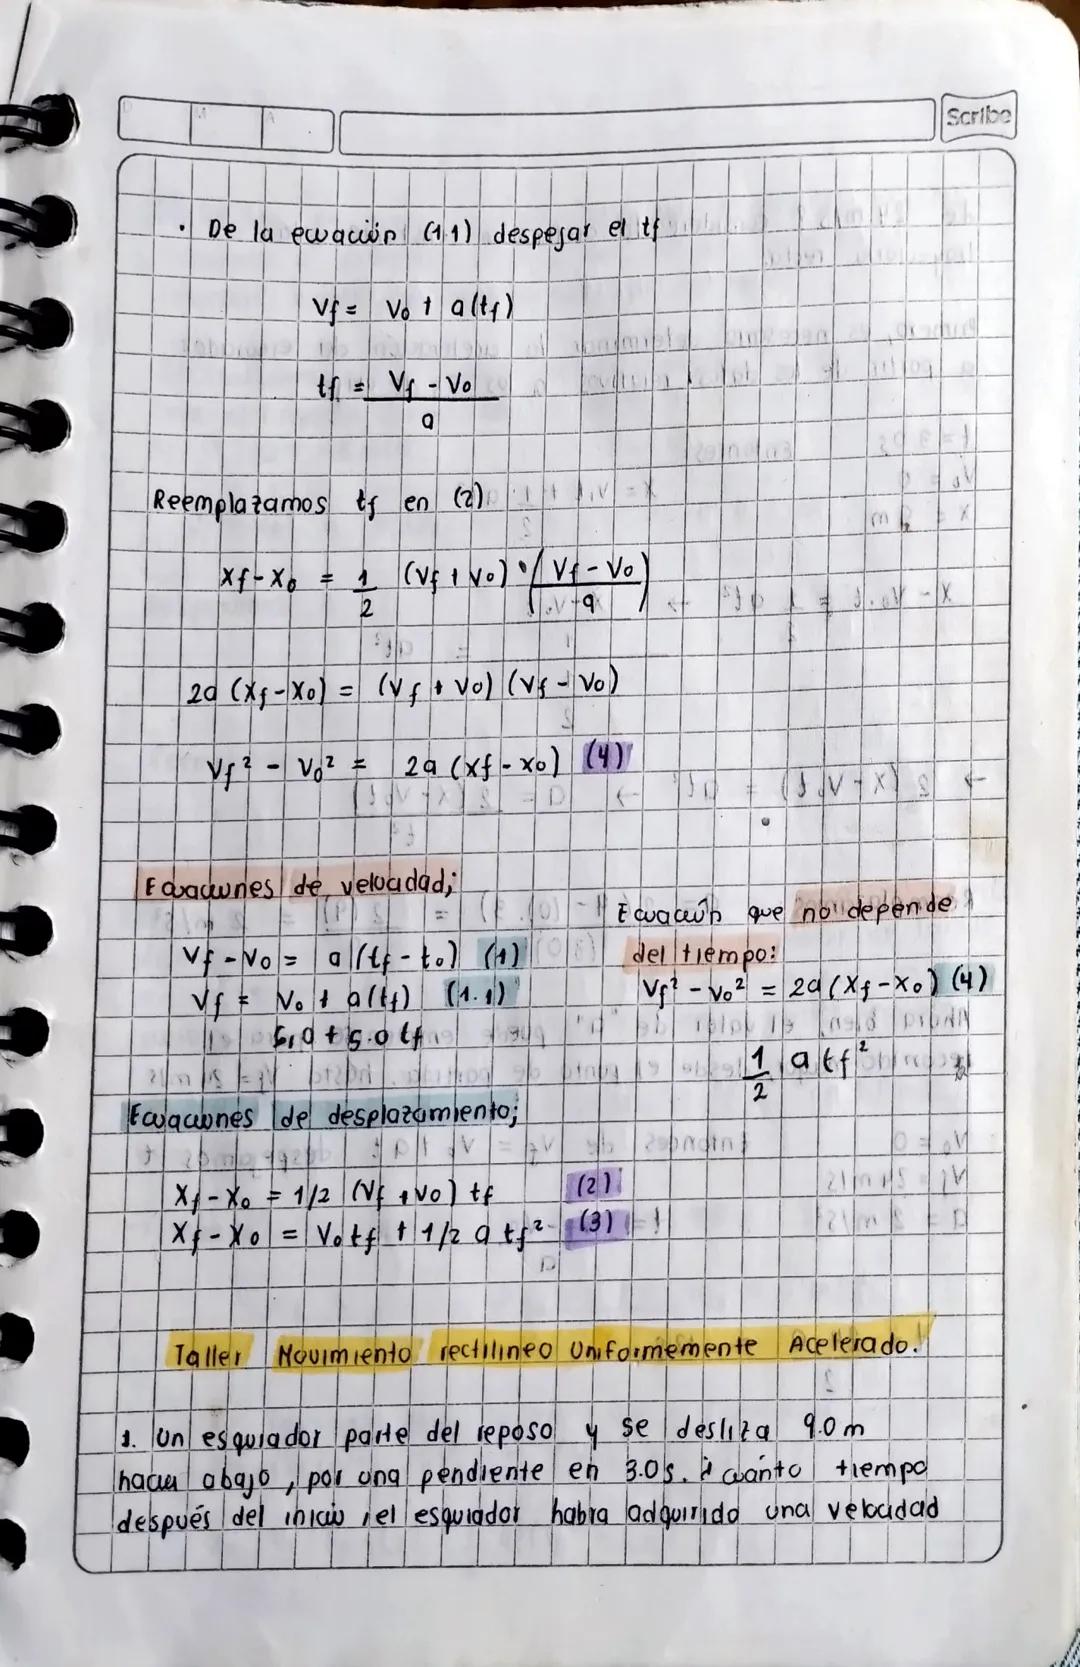 D M A
Scribe
• De la ecuación (1.1) despejar el tf
Vf = V₀ + a(tf)
tf = Vf - V₀
a
Reemplazamos tf en (2)
Xf - X₀ = 1/2 (Vf + V₀) • (Vf - V₀ / a)
2a (Xf - X₀) = (Vf + V₀) (Vf - V₀)
Vf² - V₀² = 2a (xf - x₀) (4)
Ecuaciones de velocidad;
Vf - V₀ = a (tf - t₀) (1)
Vf = V₀ + a(tf) (1.1)
5.0 tf
Ecuación que no depende
del tiempo:
Vf² - V₀² = 2a (Xf - X₀) (4)
1/2 a tf²
Ecuaciones de desplazamiento;
Xf - X₀ = 1/2 (Vf + V₀) tf (2)
Xf - X₀ = V₀tf + 1/2 a tf² (3)
Taller Movimiento rectilineo Uniformemente Acelerado.
1. Un esquiador parte del reposo y se desliza 9.0 m
hacia abajo, por una pendiente en 3.0 s. ¿ cuánto tiempo
después del inicio, el esquiador habra adquirido una velocidad